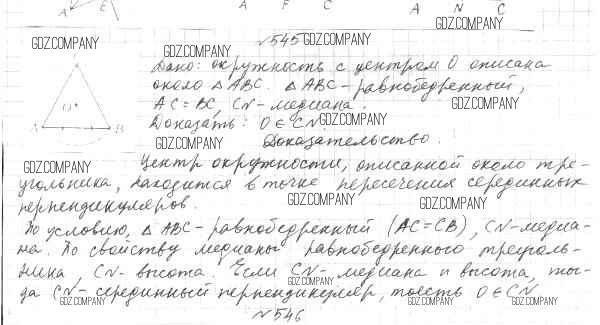 A E F C A N C
GDZ.COMPANY
№545 GDZ.COMPANY
GDZ.COMPANY
GDZ.COMPANY
Дано: окружность с центром O описана
около △ABC. △ABC - равнобедренный,
AC=BC, CN - медиана. GDZ.COMPANY
Доказать: O∈CN
GDZ.COMPANY
Доказательство.
C
O
A B
GDZ.COMPANY GDZ.COMPANY
Центр окружности, описанной около тре-
угольника, находится в точке пересечения серединных
перпендикуляров. GDZ.COMPANY GDZ.COMPANY
По условию, △ABC - равнобедренный (AC=CB), CN - медиа-
на. По свойству медианы равнобедренного треуголь-
ника, CN - высота. Если CN - медиана и высота, то-
GDZ.COMPANY
да CN - серединный перпендикуляр, тоесть O∈CN
GDZ.COMPANY GDZ.COMPANY GDZ.COMPANY GDZ.COMPANY
№546